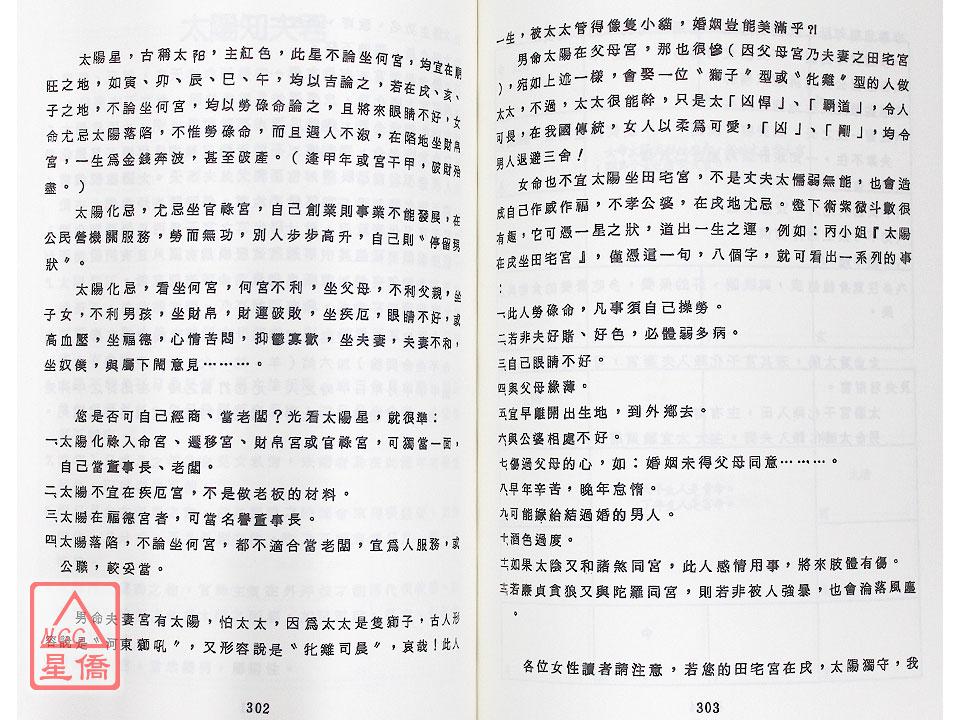 太陽星，古稱太陽，主紅色，此星不論坐何宮，均宜在廟
旺之地，如寅、卯、辰、巳、午，均以吉論之，若在戌、亥、
子之地，不論坐何宮，均以勞碌命論之，且將來眼睛不好，女
命尤忌太陽落陷，不惟勞碌命，而且遇人不淑，在陷地坐財帛
宮，一生為金錢奔波，甚至破產。（逢甲年或宮干甲，破財殆
盡。）
太陽化忌，尤忌坐官祿宮，自己創業則事業不能發展，在
公民營機關服務，勞而無功，別人步步高升，自己則〝停留現
狀〞。
太陽化忌，看坐何宮，何宮不利，坐父母，不利父親，坐
子女，不利男孩，坐財帛，財運破敗，坐疾厄，眼睛不好，或
高血壓，坐福德，心情苦悶，抑鬱寡歡，坐夫妻，夫妻不和，
坐奴僕，與屬下鬧意見………。
您是否可自己經商、當老闆？光看太陽星，就很準：
一太陽化祿入命宮、遷移宮、財帛宮或官祿宮，可獨當一面，
自己當董事長、老闆。
二太陽不宜在疾厄宮，不是做老板的材料。
三太陽在福德宮者，可當名譽董事長。
四太陽落陷，不論坐何宮，都不適合當老闆，宜為人服務，或
公職，較妥當。
男命夫妻宮有太陽，怕太太，因為太太是隻獅子，古人形
容說是〝河東獅吼〞，又形容說是〝牝雞司晨〞，哀哉！此人
NCC
星僑
302
一生，被太太管得像隻小貓，婚姻豈能美滿乎?!
男命太陽在父母宮，那也很慘（因父母宮乃夫妻之田宅宮
），宛如上述一樣，會娶一位『獅子』型或『牝雞』型的人做
太太，不過，太太很能幹，只是太「凶悍」、「霸道」，令人
可畏，在我國傳統，女人以柔為可愛，「凶」、「剛」，均令
男人退避三舍！
女命也不宜太陽坐田宅宮，不是丈夫太懦弱無能，也會造
成自己作威作福，不孝公婆，在戌地尤忌。燈下術紫微斗數很
有趣，它可憑一星之狀，道出一生之運，例如：丙小姐『太陽
在戌坐田宅宮』，僅憑這一句，八個字，就可看出一系列的事
：
一此人勞碌命，凡事須自己操勞。
二若非夫好賭、好色，必體弱多病。
三自己眼睛不好。
四與父母緣薄。
五宜早離開出生地，到外鄉去。
六與公婆相處不好。
七傷過父母的心，如：婚姻未得父母同意………。
八早年辛苦，晚年怠惰。
九可能嫁給結過婚的男人。
十酒色過度。
十一如果太陰又和諸煞同宮，此人感情用事，將來肢體有傷。
十二若廉貞貪狼又與陀羅同宮，則若非被人強暴，也會淪落風塵
。
各位女性讀者請注意，若您的田宅宮在戌，太陽獨守，我
303